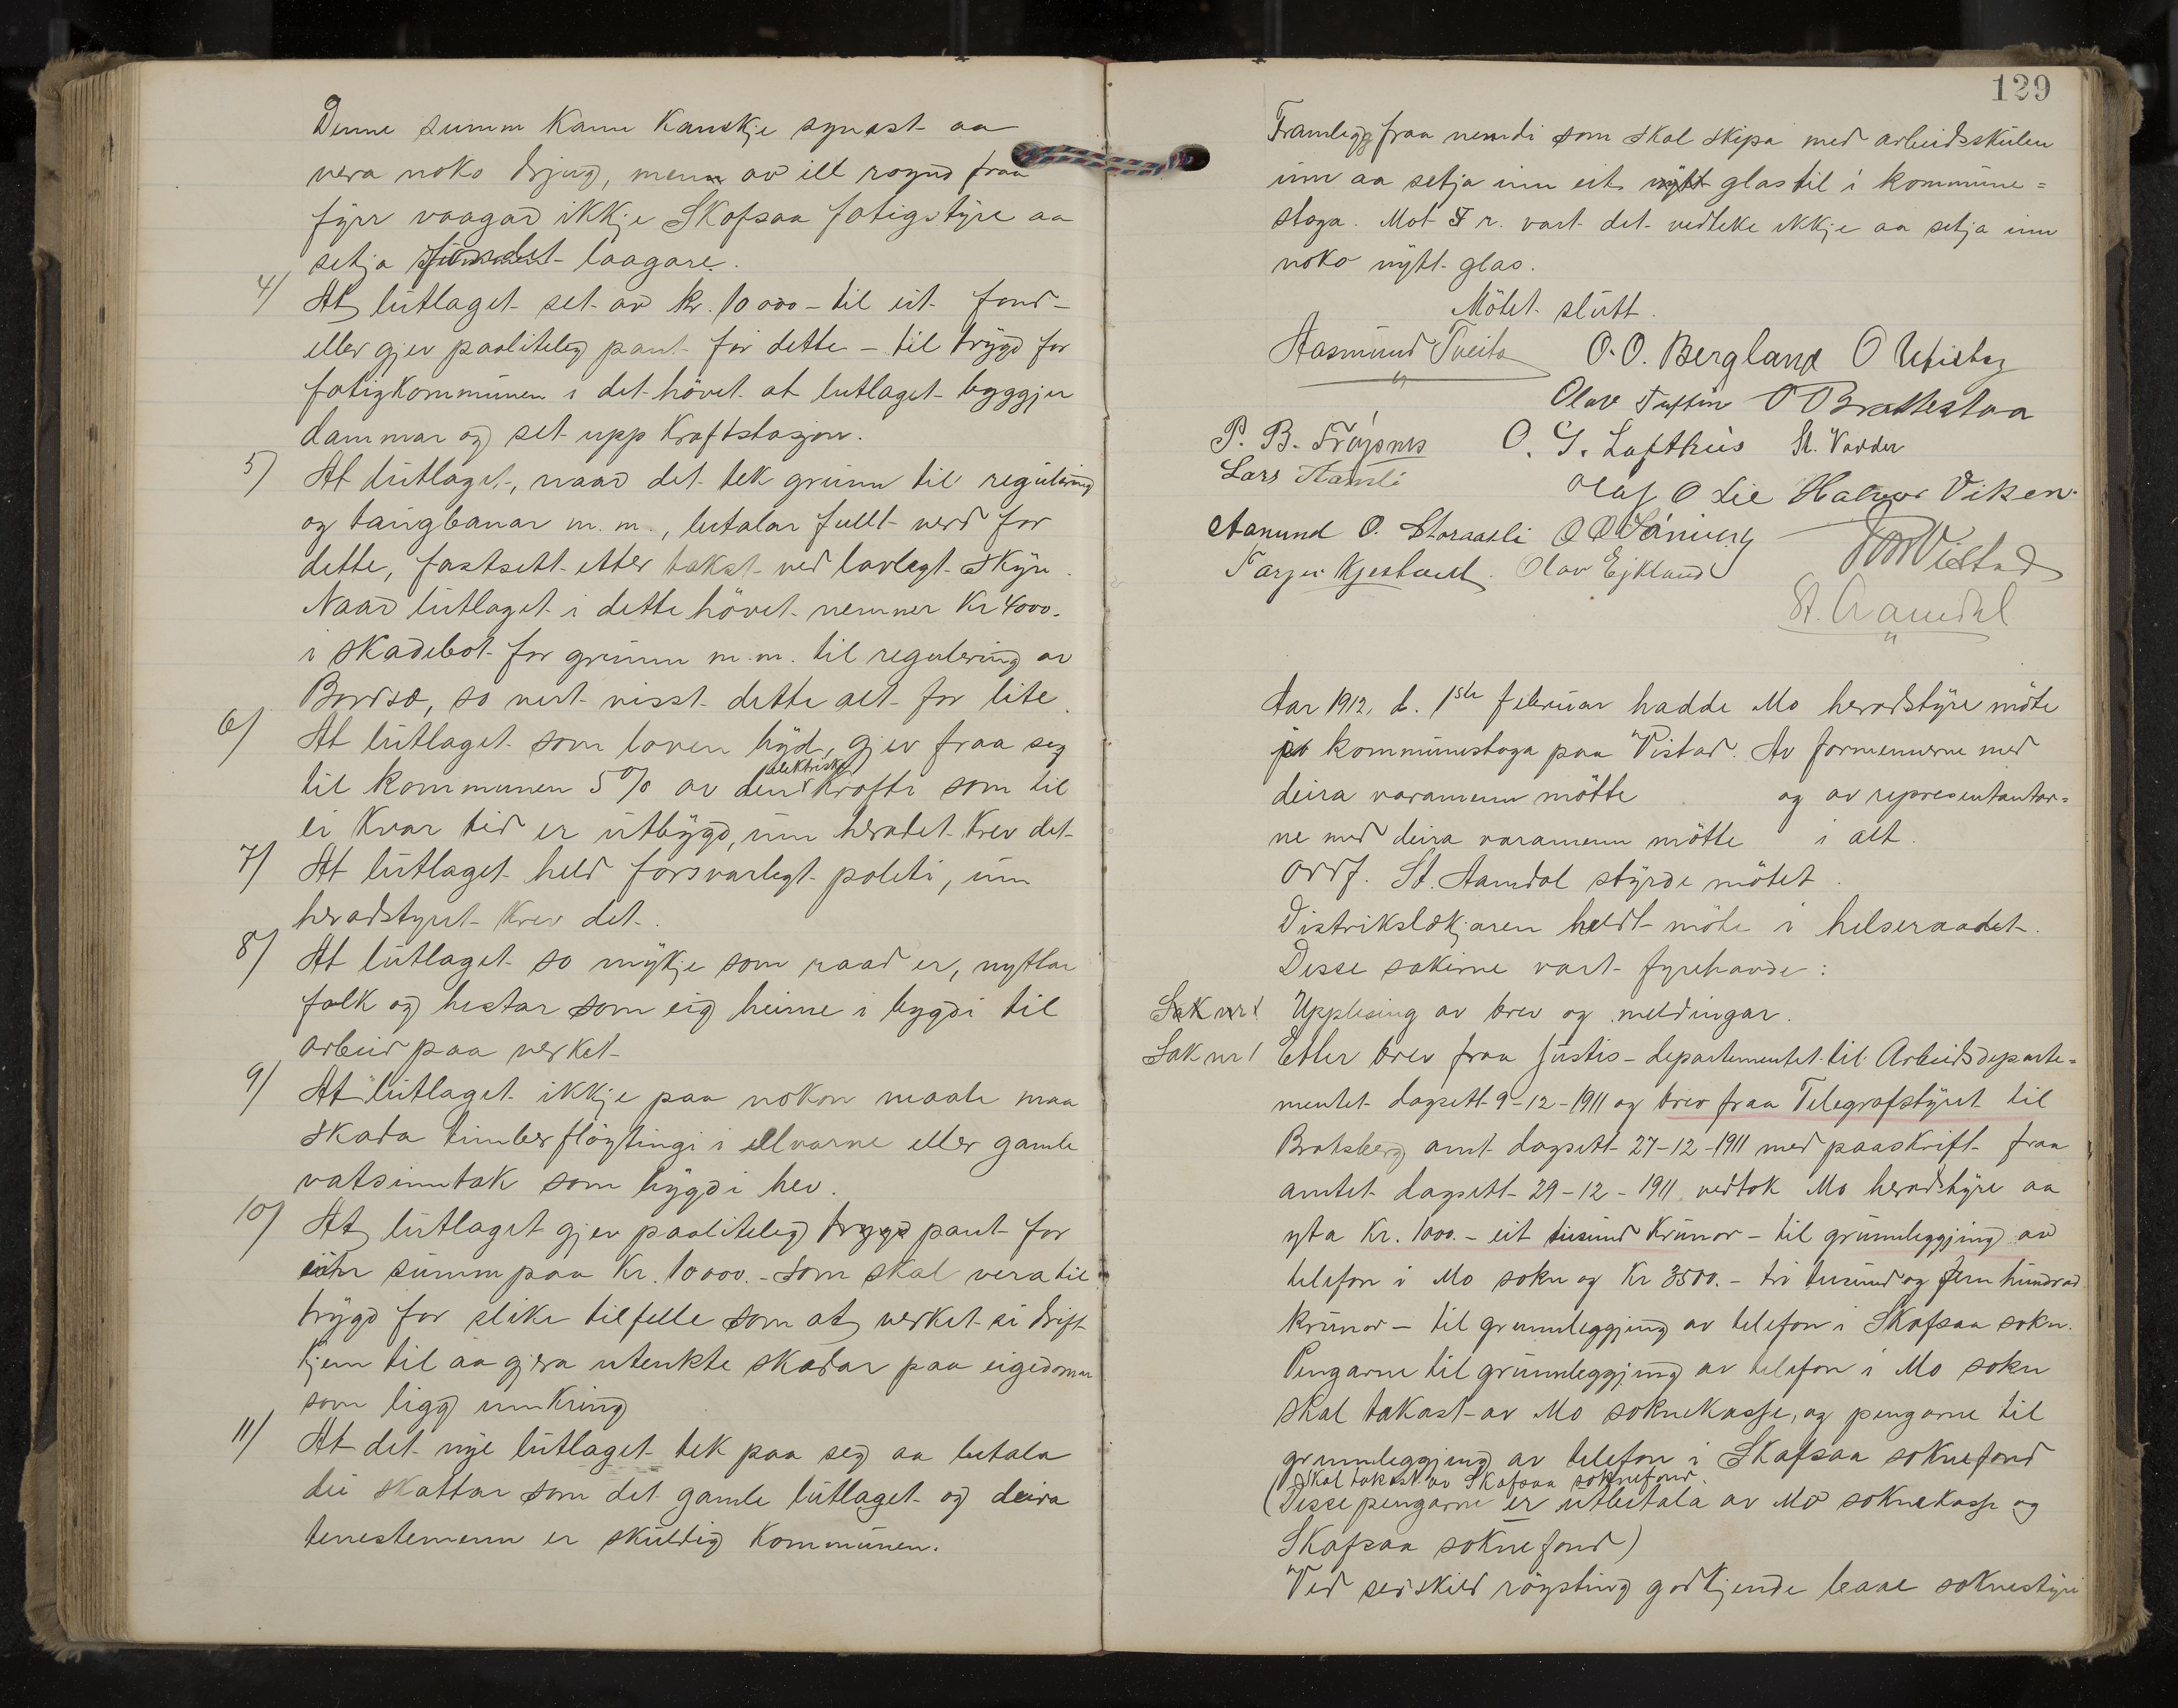 Denne summ kann kanskje synast aa
vera noko drjug, menn av ill røynd fraa
fyrr vaagar ikkje Skafsaa fatigstyre aa
setja laagare.
4) At lutlaget set av kr. 10000 - til eit fond -
eller gjev paaliteleg pant for dette - til trygd for
fatigkommunen i det høvet at lutlaget byggjer
dammar og set upp kraftstasjon.
5) At lutlaget, naar det tek grunn til regulering
og taugbanar m.m., betalar fullt verd for
dette, fastsett etter takst ved lovlegt skyn.
Naar lutlaget i dette høvet nemner Kr 4000.
i skadebot for grunn m.m. til regulering av
Bordsæ, so vert visst dette alt for lite.
6) At lutlaget som loven byd, gjev fraa seg
til kommunen 5% av den elektriske krafti som til
ei kvar tid er utbygd, um heradet krev det
7) At lutlaget held forsvarlegt politi, um
heradstyret krev det.
8) At lutlaget so mykje som raad er, nyttar
folk og hestar som eig heime i bygdi til
arbeid paa verket
9) At lutlaget ikkje paa nokon maate maa
skada timberfløytingi i elvarne eller gamle
vatsinntak som bygdi hev.
10) At lutlaget gjev paaliteleg trygd pant for
ein summ paa Kr. 10000. - som skal vera til
trygd for slike tilfelle som at verket si drift
kjem til aa gjera utenkte skadar paa eigedomar
som ligg umkring
11) At det nye lutlaget tek paa seg aa betala
dei skattar som det gamle lutlaget og deira
tenestemenn er skuldig kommunen.
129
Framlegg fraa nemdi som skal skipa med arbeidsskulen
um aa setja inn eit nytt glas til i kommune=
stoga. Mot 7 r. vart det vedteke ikkje aa setja inn
noko nytt glas.
Møtet slutt.
Aasmund Tveito O. O. Bergland O
Olav Tuftin O Brattestaa
P. B. Frøysnes O. G. Lofthus St. Vadder
Lars Hamli Olaf O Lie Halvor Viken.
Aanund O. Storaasli O O
Tarjei Olav Ejkland Vistad
St. Aamdal
Aar 1912, d. 1ste februar hadde Mo heradstyre møte
på kommunestoga paa Vistad. Av formennerne med
deira varamenn møtte og av representantar=
ne med deira varamenn møtte i alt.
Ordf. St. Aamdal styrde møtet.
Distrikslækjaren heldt møte i helseraadet.
Desse sakirne vart fyrehavde:
Sak nr 1. Upplesing av brev og meldingar.
Sak nr 1 Etter brev fraa Justis-departementet til Arbeidsdeparte=
mentet dagsett 9-12-1911 og brev fraa Telegrafstyret til
Bratsberg amt dagsett 27-12-1911 med paaskrift fraa
amtet dagsett 29-12-1911 vedtok Mo heradstyre aa
yta Kr. 1000. - eit tusund krunor - til grunnleggjing av
telefon i Mo sokn og Kr 3500. - tri tusund og fem hundrad
krunor - til grunnleggjing av telefon i Skafsaa sokn.
Pengarne til grunnleggjing av telefon i Mo sokn
skal takast av Mo soknekasse, og pengarne til
grunnleggjing av telefon i Skafsaa soknefond
skal takast av Skafsaa soknefond.
(Desse pengarne er utbetala av Mo soknekasse og
Skafsaa soknefond)
Ved serskild røysting godkjende baae soknestyri